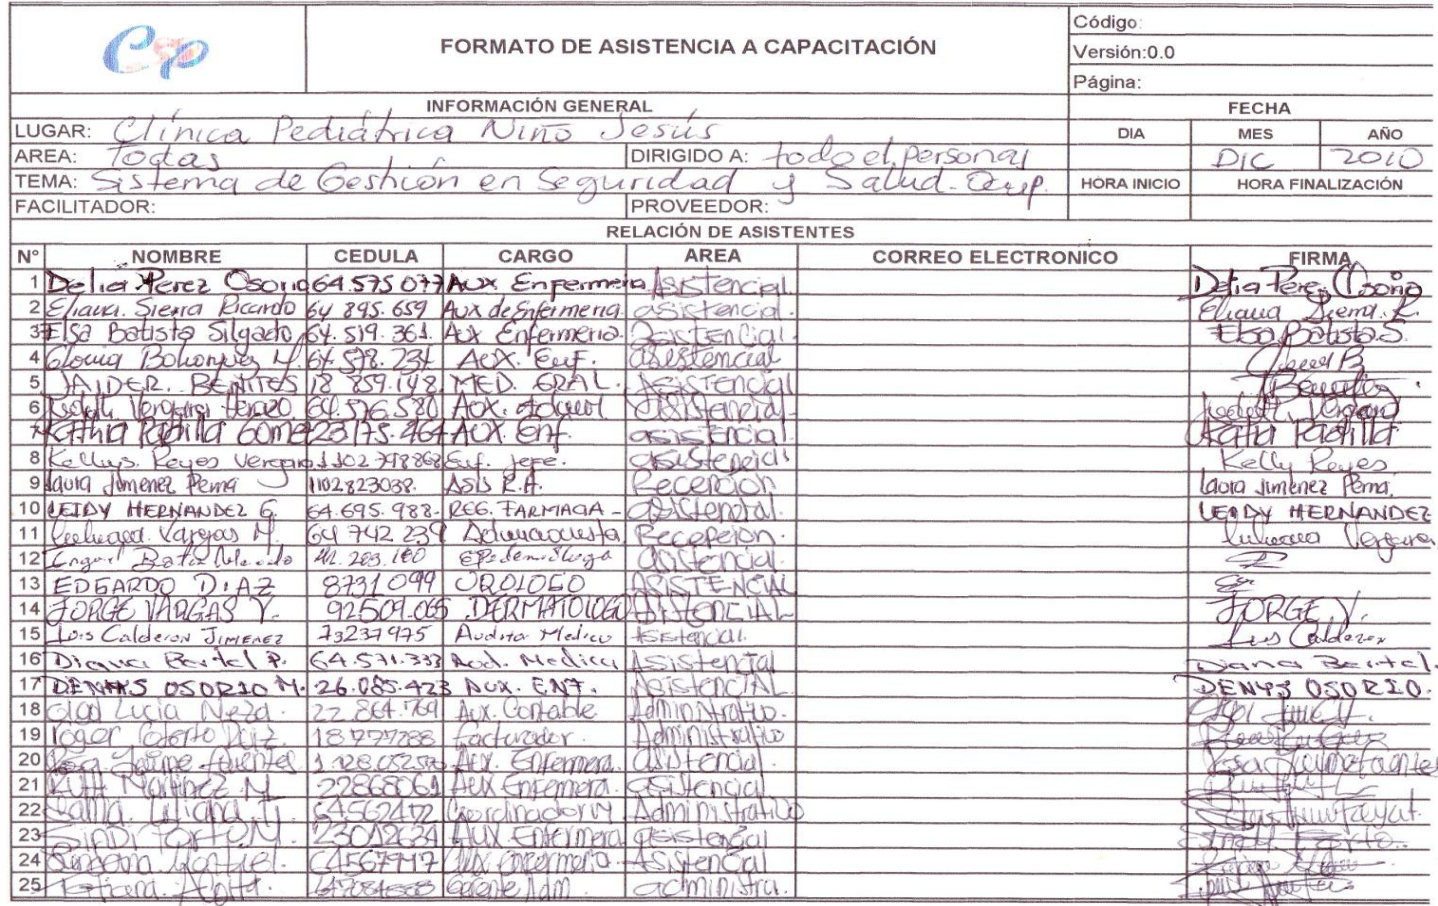 CSP
FORMATO DE ASISTENCIA A CAPACITACIÓN
Código:
Versión:0.0
Página:
INFORMACIÓN GENERAL FECHA
LUGAR: Clínica Pediátrica Niño Jesús DIA MES AÑO
AREA: Todas DIRIGIDO A: todo el personal DIC 2010
TEMA: Sistema de Gestión en Seguridad y Salud Ocup. HORA INICIO HORA FINALIZACIÓN
FACILITADOR: PROVEEDOR:
RELACIÓN DE ASISTENTES
N° NOMBRE CEDULA CARGO AREA CORREO ELECTRONICO FIRMA
1 Delia Perez Osorio 64.575.077 Aux Enfermeria Asistencial Delia Perez Osorio
2 Eliana Sierra Ricardo 64 895.659 Aux de Enfermeria asistencial. Eliana Sierra R.
3 Elsa Batista Silgado 64.519.361. Aux Enfermeria. Asistencial Elsa Batista S.
4 Gloria 64.578.234 Aux. Enf. asistencial
5 JAIDER. BENITES 18 859.148 MED. GRAL. Asistencial
6 Vergara 64.576.580 Aux. asistencial
7 Kathia Padilla Gomez 23175.464 Aux. Enf. asistencial. Katia Padilla
8 Kellys. Reyes Vergara 1102798868 Enf. jefe. asistencial Kelly Reyes
9 Laura Jimenez Perna 1102823038. Asis R.F. Recepcion laura Jimenez Perna.
10 LEIDY HERNANDEZ G. 64.695.988- REG. FARMACIA - asistencial. LEIDY HERNANDEZ
11 Vargas M. 64 742 239 Recepcion.
12 asistencial.
13 EDGARDO DIAZ 8731099 UROLOGO ASISTENCIAL
14 JORGE VARGAS Y. 92509.065 DERMATOLOGO ASISTENCIAL JORGE V.
15 Luis Calderon JIMENEZ 73237975 Auditor Medico Asistencial. Luis Calderon
16 Diana Bertel P. 64.571.333 Aud. Medica Asistencial Diana Bertel.
17 DENNYS OSORIO M. 26.085.423 Aux. ENF. Asistencial DENYS OSORIO.
18 Olga Lucia Meza. 22.864.769 Aux. Contable Administrativo.
19 roger Ruiz. 18777288 facturador. Administrativo
20 Rosa Jaime fuentes Aux. Enfermera. asistencial. Rosa Jaime fuentes
21 Ruth Martinez M. 22868061 Aux Enfermera. asistencial
22 Liliana 64562472 Coordinadora Administrativo
23 SINDI 23012634 Aux Enfermera asistencial
24 Montiel. 64567717 Aux enfermera Asistencial
25 Gerente Adm. administra.